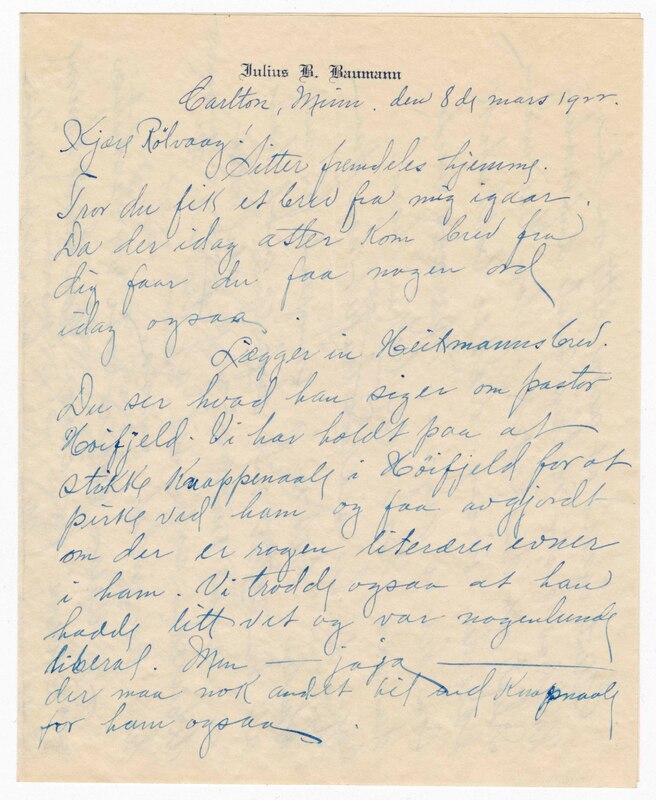 Julius B. Baumann
Carlton, Minn. den 8de mars 1922.
Kjære Rølvaag!
Sitter fremdeles hjemme.
Tror du fik et brev fra mig igaar.
Da der idag atter kom brev fra
dig faar du faa nogen ord
idag ogsaa.
Lægger in Heitmanns brev.
Du ser hvad han siger om pastor
Høifjeld. Vi har holdt paa at
stikke Knappenaale i Høifjeld for at
pirke ved ham og faa avgjordt
om der er nogen literære evner
i ham. Vi trodde ogsaa at han
hadde litt vet og var nogenlunde
liberal. Men — jaja —
der maa nok andet til end Knapnaale
for ham ogsaa.